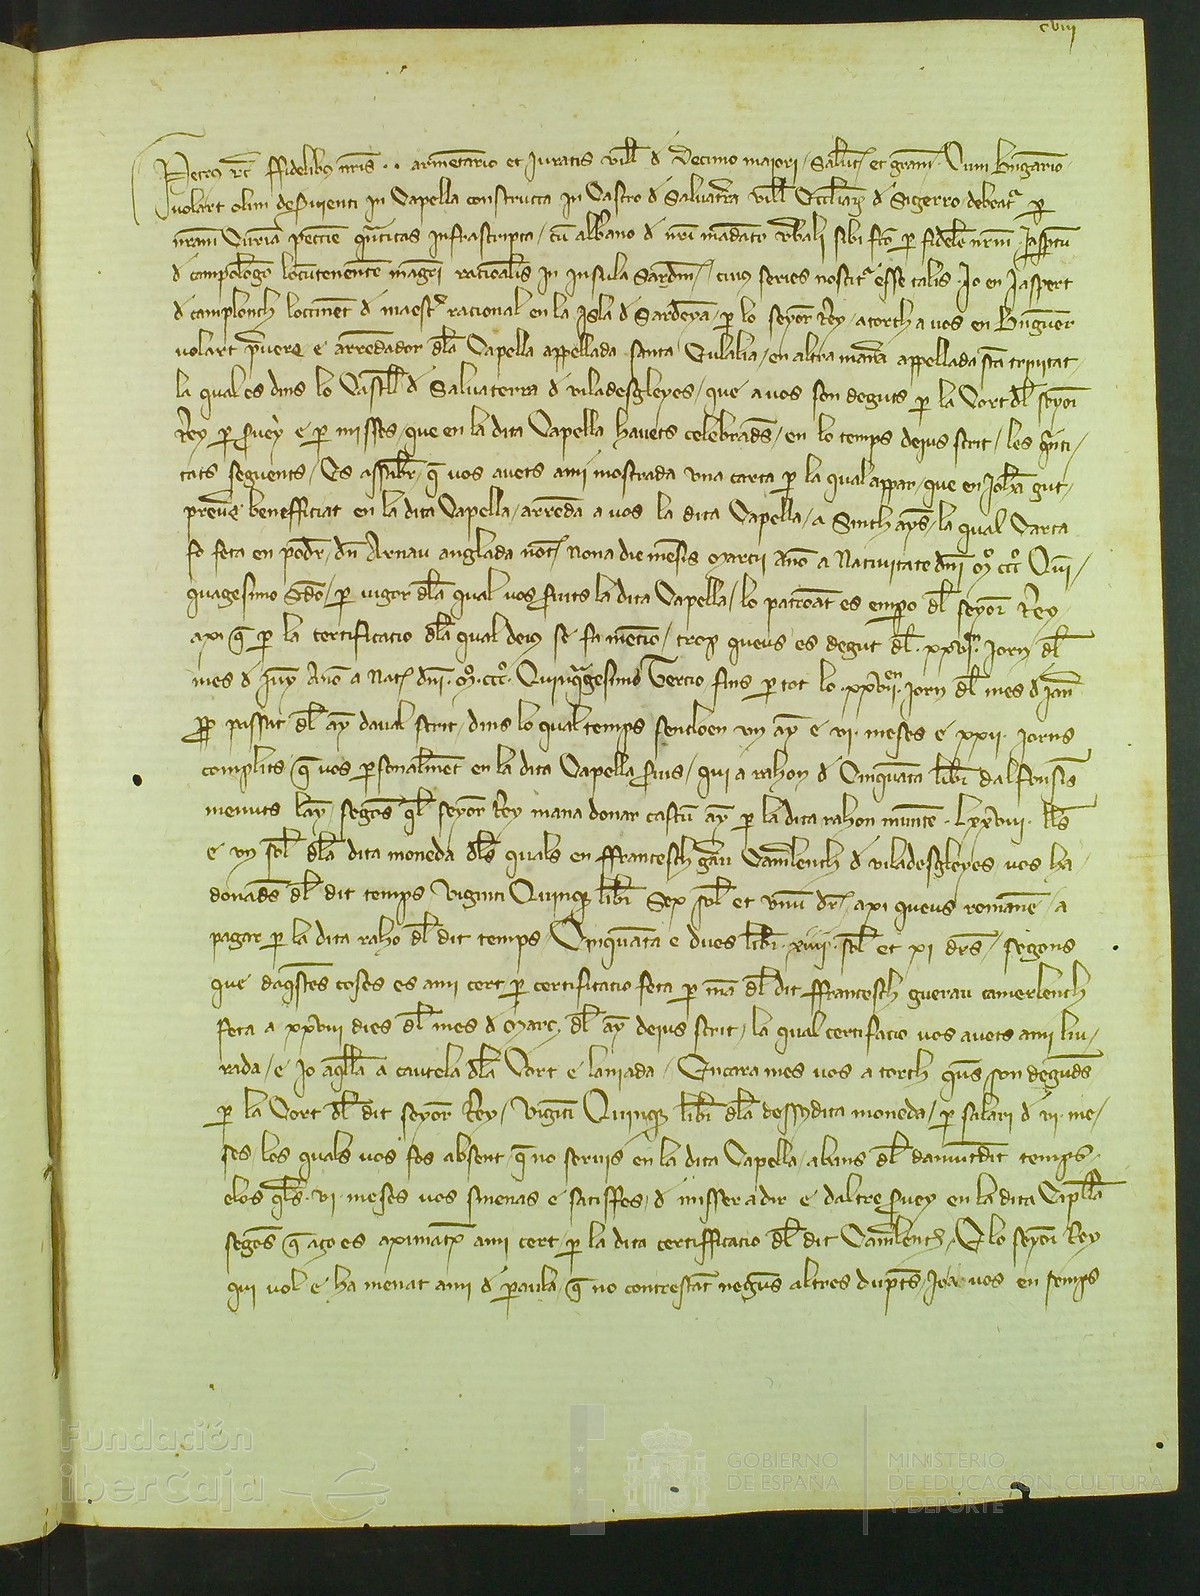 cviii
Petrus etc̄ ffidelibus nr̄is .. armentario et Juratis vill̄ d̄ Decimo maiori / Salut̄ et gram̄ / Cum Bn̄gario
volart olim deẞuienti in Capella constructa in Castro d̄ Salvatr̄ra vill̄ Eccl̄iarꝫ d̄ Sigerro debeat̄ ꝑ
nr̄am Curiā peccīe qn̄titas infrascripta / cū albāno d̄ nr̄i mādato v̄bali sibi fc̄o ꝑ fidelē nr̄m Jasꝑtū
d̄ campolōgo locūtenentē magr̄i racioālis in insula Sardīn / cuiꝰ series noscit̄ esse talis . Jo en Jaspert
d̄ camplonch loctinēt d̄ maestr̄ racional en la Jsla d̄ Sardeyā / ꝑ lo seyor Rey / atorch a vos en Bn̄guer
volart p̄vere e arrēdador dl̄a Capella appellada santa Eulalia / en altra manā appellada sc̄a trinitat /
la qual es dins lo Castell̄ d̄ Salvaterra d̄ viladesgleyes / que a vos son deguts ꝑ la Cort dl̄ seyor
Rey ꝑ ẞuey e ꝑ misses / que en la dita Capella havets celebrads̄ / en lo temps dejus scrit / les qn̄ti /
tats seguents / Es assab̄r / q̄ vos avets ami mostrada una carta ꝑ la qual appar / que en Joh̄a gut /
prevē benefficiat en la dita Capella / arrēda a vos la dita Capella / a Sinch ays̄ / la qual Carta
fo feta en pod̄r / dn̄ Arnau anglada not̄ / nona die mēsis Marcii Ano a Nativitate dn̄i M̊ ccc̊ Qui /
quagesimo Sc̄do / ꝑ vigor dl̄a qual vos ẞvits la dita Capella / lo patroāt es empo dl̄ seyor Rey /
axi q̄ ꝑ la certificacio dl̄a qual dejus se fa mēcio / trop queus es degut dl̄ . xxvi.en jorn dl̄
mes d̄ Juy Ano a Nat̄ dn̄i . M̊ . ccc̊ . Quinq̄gesimo Tercio fins ꝑ tot lo . xxvii.en jorn dl̄ mes d̄ Jan̄
ꝓ passat dl̄ ay daval scrit / dins lo qual temps sencloen un ay e vi . meses e xxii . jorns
complits / q̄ vos ꝑsonalmēt en la dita Capella ẞuis / qui a rahon d̄ Cinquāta libr̄ dalfonsīs
menuts lay / segōs ql̄ seyor Rey mana donar cascū ay ꝑ la dita rahon mūnte . Lxxviii . ll̄s
e un sol̄ dl̄a dita moneda dl̄s quals en ffrancesch grāu Cam̄lench d̄ viladesgleyes vos ha /
donads̄ dl̄ dit temps / Viginti Quinqꝫ libr̄ Sex sol̄ et unū dr̄ / axi queus romānē / a
pagar ꝑ la dita raho dl̄ dit temps / Cinquāta e dues libr̄ . xiiii . sol̄ et xi drs̄ / segons
que daqs̄tes coses es ami cert ꝑ certificacio feta ꝑ mā dl̄ dit ffrancesch guerau camerlench
feta a xxviii dies dl̄ mes d̄ Març dl̄ ay dejus scrit / la qual certificacio vos avets ami liu /
rada / e Jo aql̄la a cautela dl̄a Cort e laniada / Encara mes vos a torch queus son deguds̄
ꝑ la Cort dl̄ dit seyor Rey / Viginti Quinqꝫ libr̄ dl̄a dessusdita moneda / ꝑ salari d̄ vi . me /
ses / los quals vos fos absent / q̄ no servis en la dita Capella / abans dl̄ damūtdit temps /
e los qls̄ . vi . meses vos smenas e satisffes / d̄ misses a dir e daltre ẞuey en la dita Capl̄la
segōs q̄ aço es aximatx ami cert / ꝑ la dita certifficacio dl̄ dit Cam̄lench / E lo seyor Rey
qui vol e ha menat ami d̄ paraula / q̄ no contrestāt negūs altres duptēs / Jo a vos en temps
Fundación
iberCaja
GOBIERNO
DE ESPAÑA
MINISTERIO
DE EDUCACIÓN, CULTURA
Y DEPORTE